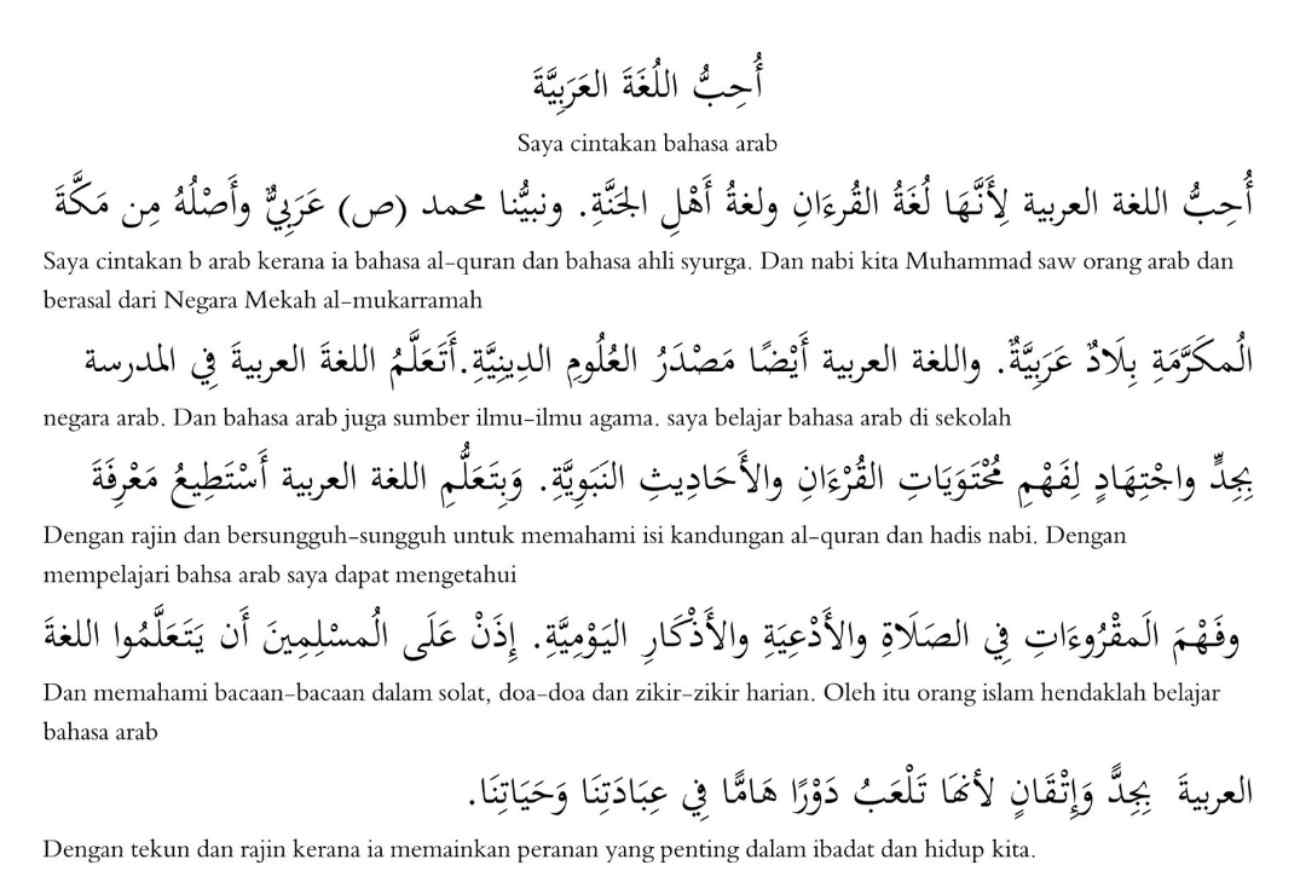 أُحِبُّ اللُغَةَ العَرَبِيَّةَ
Saya cintakan bahasa arab
أُحِبُّ اللغة العربية لِأَنَّهَا لُغَةُ القُرءَانِ ولغةُ أَهْلِ الجَنَّةِ. ونبيُّنا محمد (ص) عَرَبِيٌّ وأَصْلُهُ مِن مَكَّةَ
Saya cintakan b arab kerana ia bahasa al-quran dan bahasa ahli syurga. Dan nabi kita Muhammad saw orang arab dan
berasal dari Negara Mekah al-mukarramah
الُمكَرَّمَةِ بِلَادٌ عَرَبِيَّةٌ. واللغة العربية أَيْضًا مَصْدَرُ العُلُومِ الدِينِيَّةِ.أَتَعَلَّمُ اللغةَ العربيةَ فِي المدرسة
negara arab. Dan bahasa arab juga sumber ilmu-ilmu agama. saya belajar bahasa arab di sekolah
بِجِدٍّ واجْتِهَادٍ لِفَهْمِ مُحْتَوَيَاتِ القُرْءَانِ والأَحَادِيثِ النَبَوِيَّةِ. وَبِتَعَلُّمِ اللغة العربية أَسْتَطِيعُ مَعْرِفَةَ
Dengan rajin dan bersungguh-sungguh untuk memahami isi kandungan al-quran dan hadis nabi. Dengan
mempelajari bahsa arab saya dapat mengetahui
وفَهْمَ الَمقْرُوءَاتِ فِي الصَلَاةِ والأَدْعِيَةِ والأَذْكَارِ اليَوْمِيَّةِ. إِذَنْ عَلَى الُمسْلِمِينَ أَن يَتَعَلَّمُوا اللغةَ
Dan memahami bacaan-bacaan dalam solat, doa-doa dan zikir-zikir harian. Oleh itu orang islam hendaklah belajar
bahasa arab
العربيةَ بِجِدًّ وَإِتْقَانٍ لأنهَا تَلْعَبُ دَوْرًا هَامًّا فِي عِبَادَتِنَا وَحَيَاتِنَا.
Dengan tekun dan rajin kerana ia memainkan peranan yang penting dalam ibadat dan hidup kita.